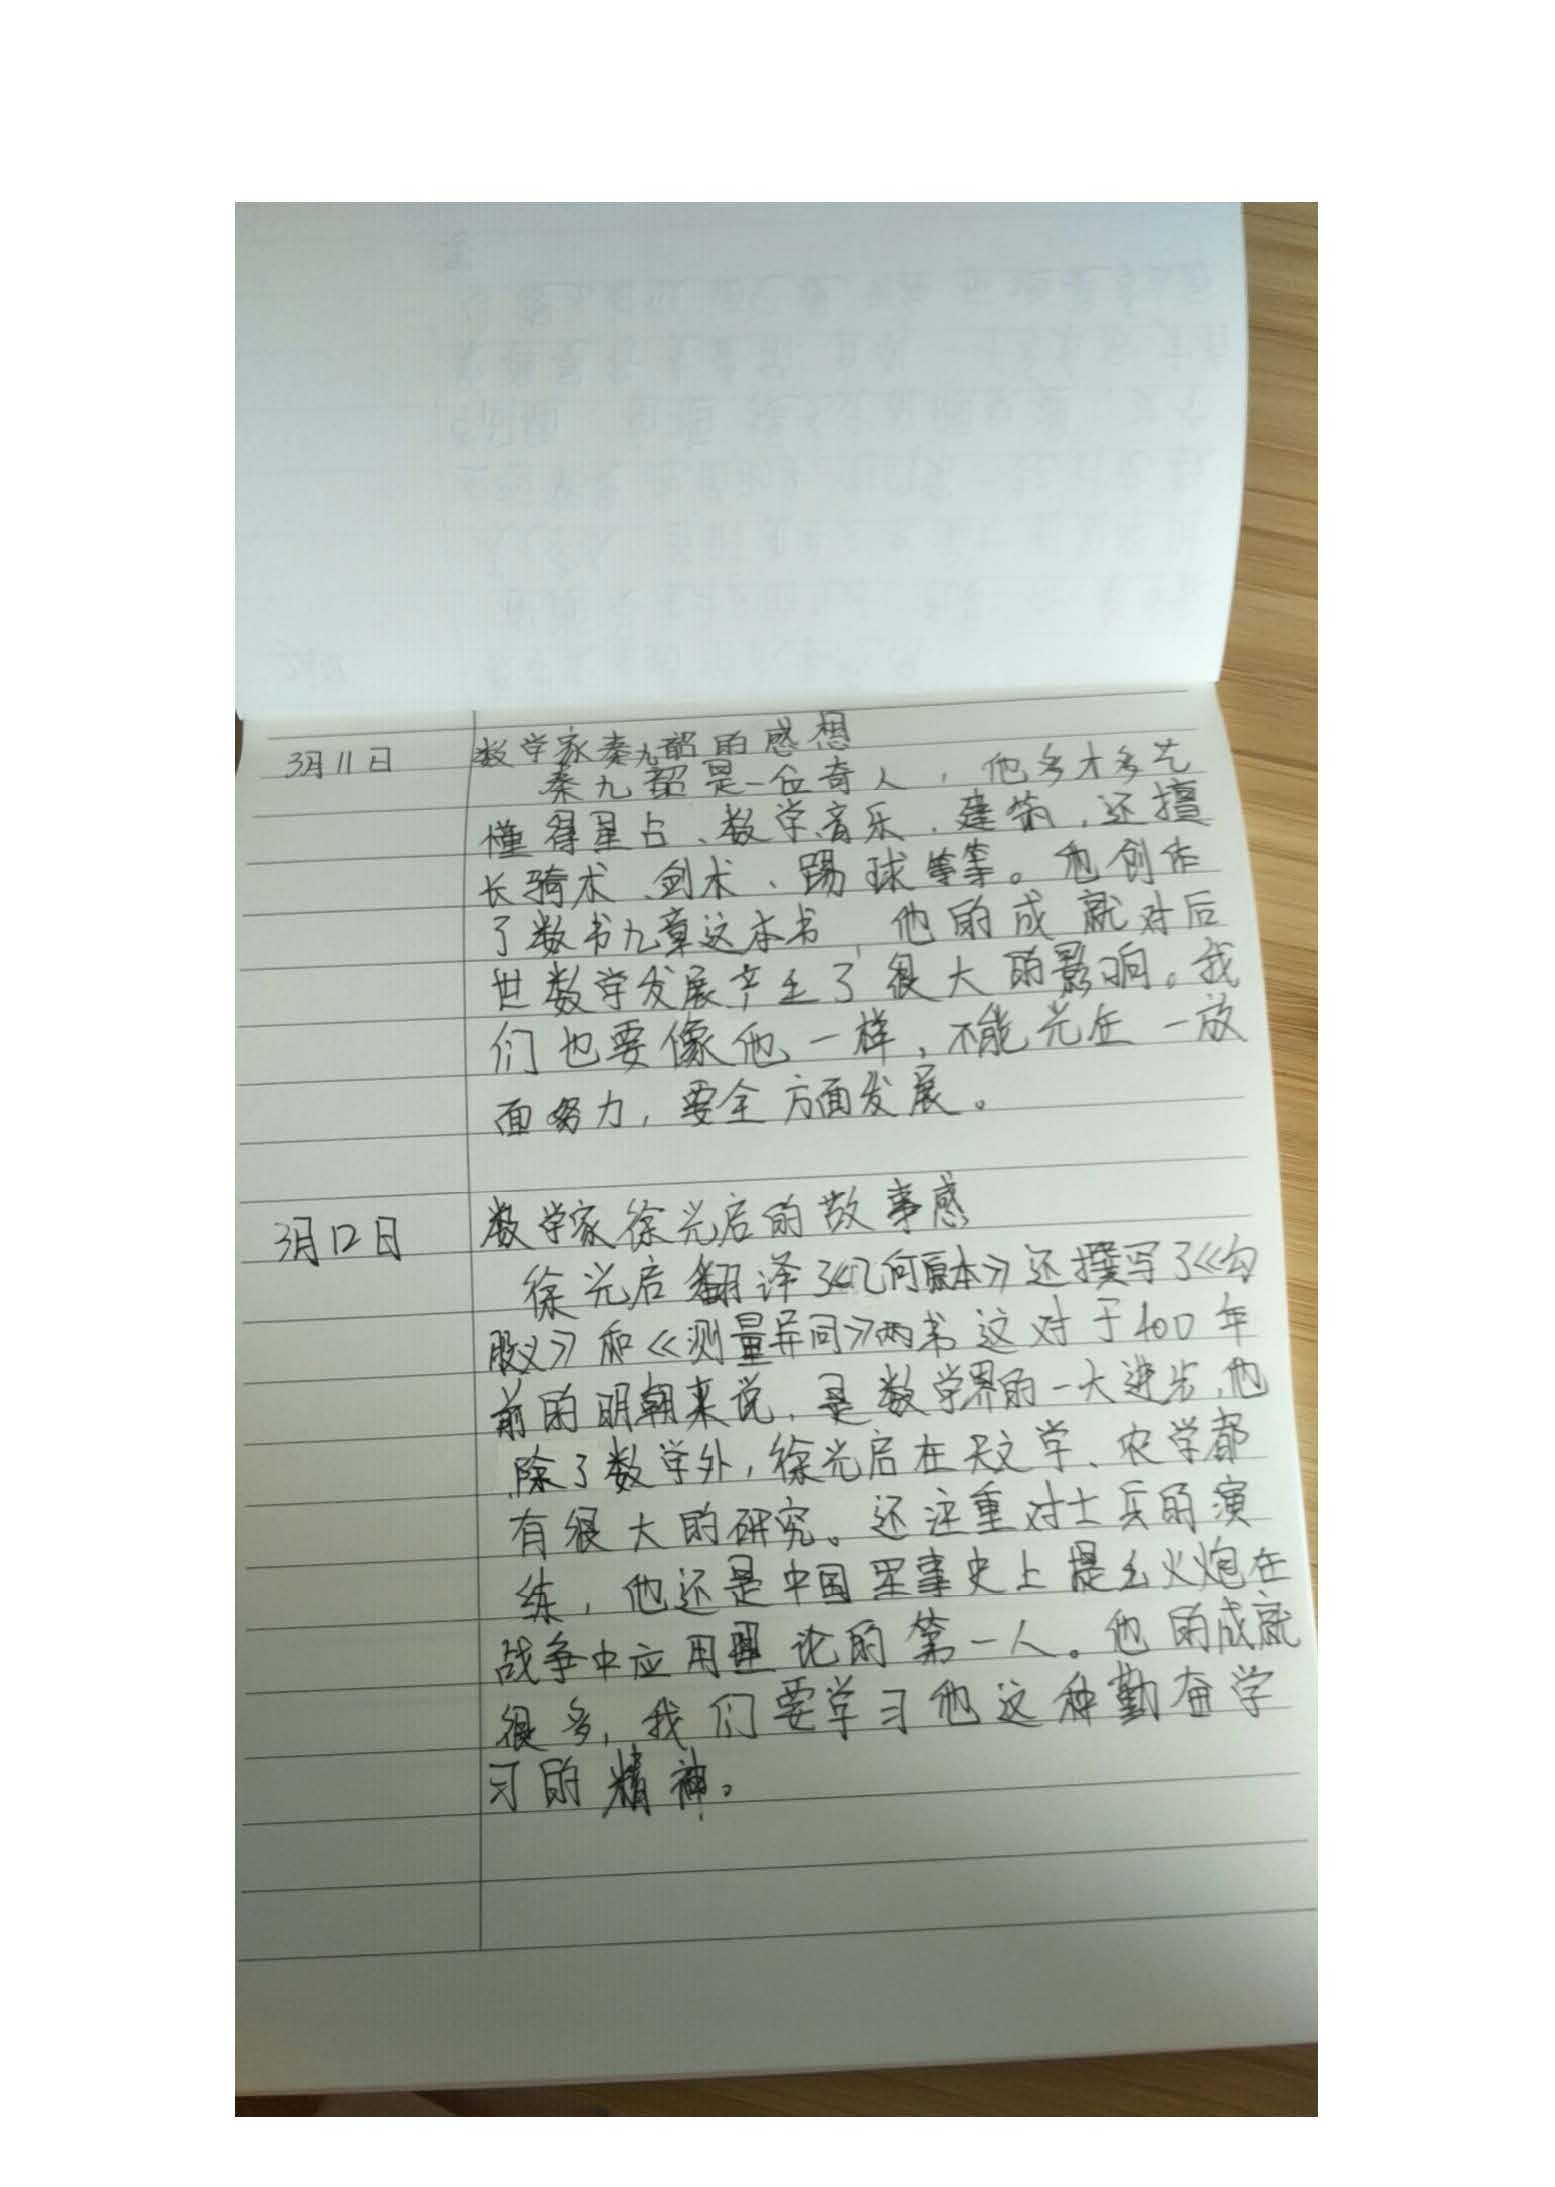 3月11日 数学家秦九韶的感想
秦九韶是一位奇人，他多才多艺
懂得星占、数学、音乐、建筑，还擅
长骑术、剑术、踢球等等。他创作
了数书九章这本书，他的成就对后
世数学发展产生了很大的影响。我
们也要像他一样，不能光在一放
面努力，要全方面发展。
3月12日 数学家徐光启的故事感
徐光启翻译了《几何原本》还撰写了《勾
股义》和《测量异同》两书这对于400年
前的明朝来说，是数学界的一大进步，他
除了数学外，徐光启在天文学、农学都
有很大的研究。还注重对士兵的演
练，他还是中国军事史上提出火炮在
战争中应用理论的第一人。他的成就
很多，我们要学习他这种勤奋学
习的精神。